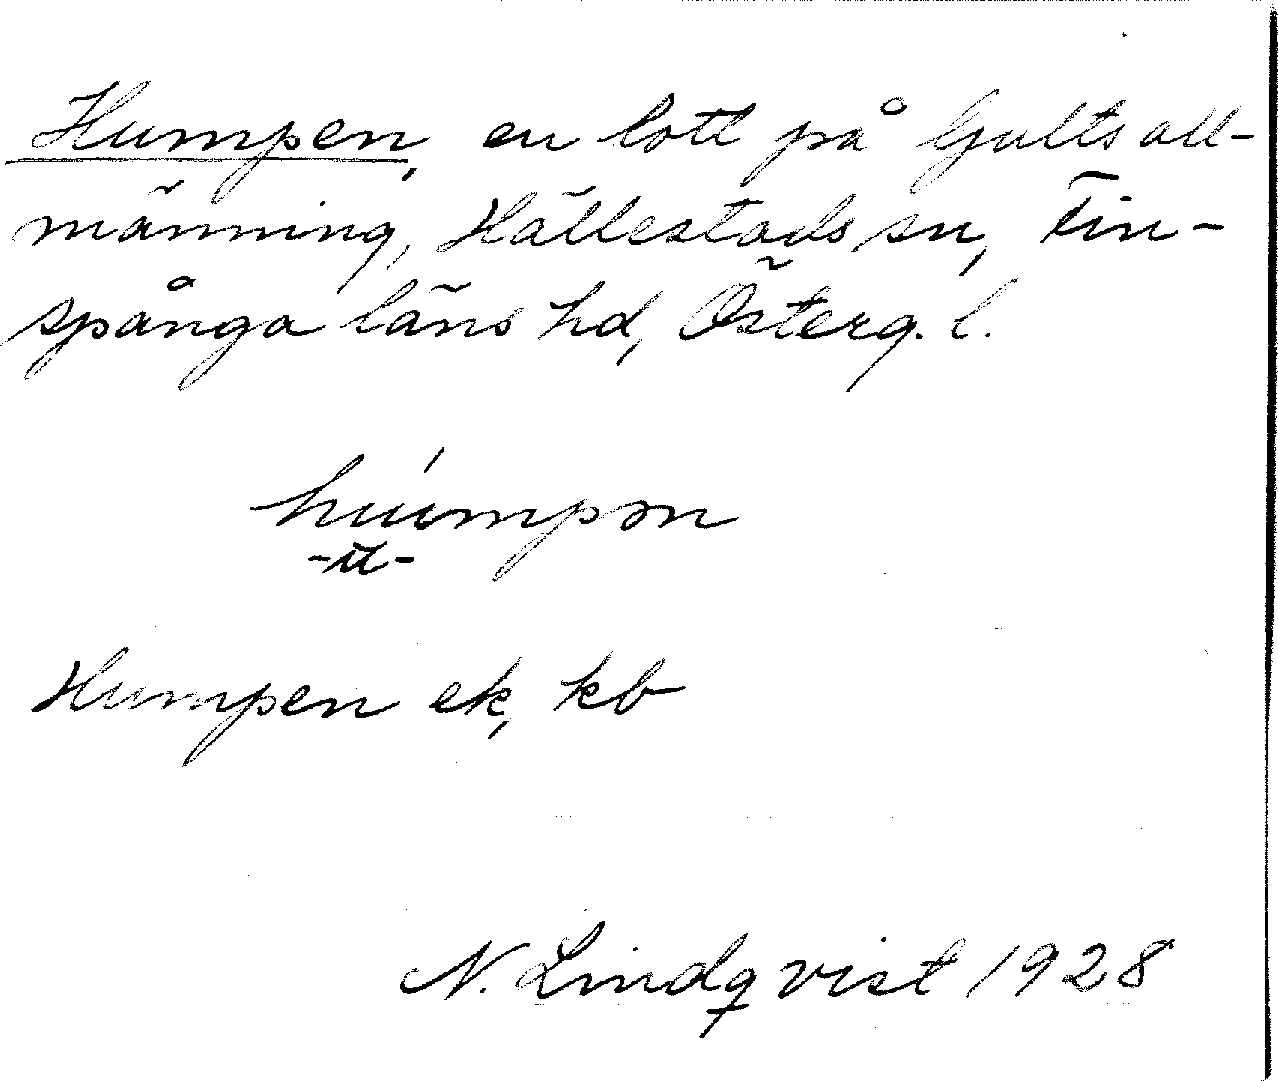 Humpen, en lott på Gults all-
männing, Hällestads sn, Fin-
spånga läns hd, Österg. l.
huúmpən
-ŭ-
Humpen ek, kb
N. Lindqvist 1928